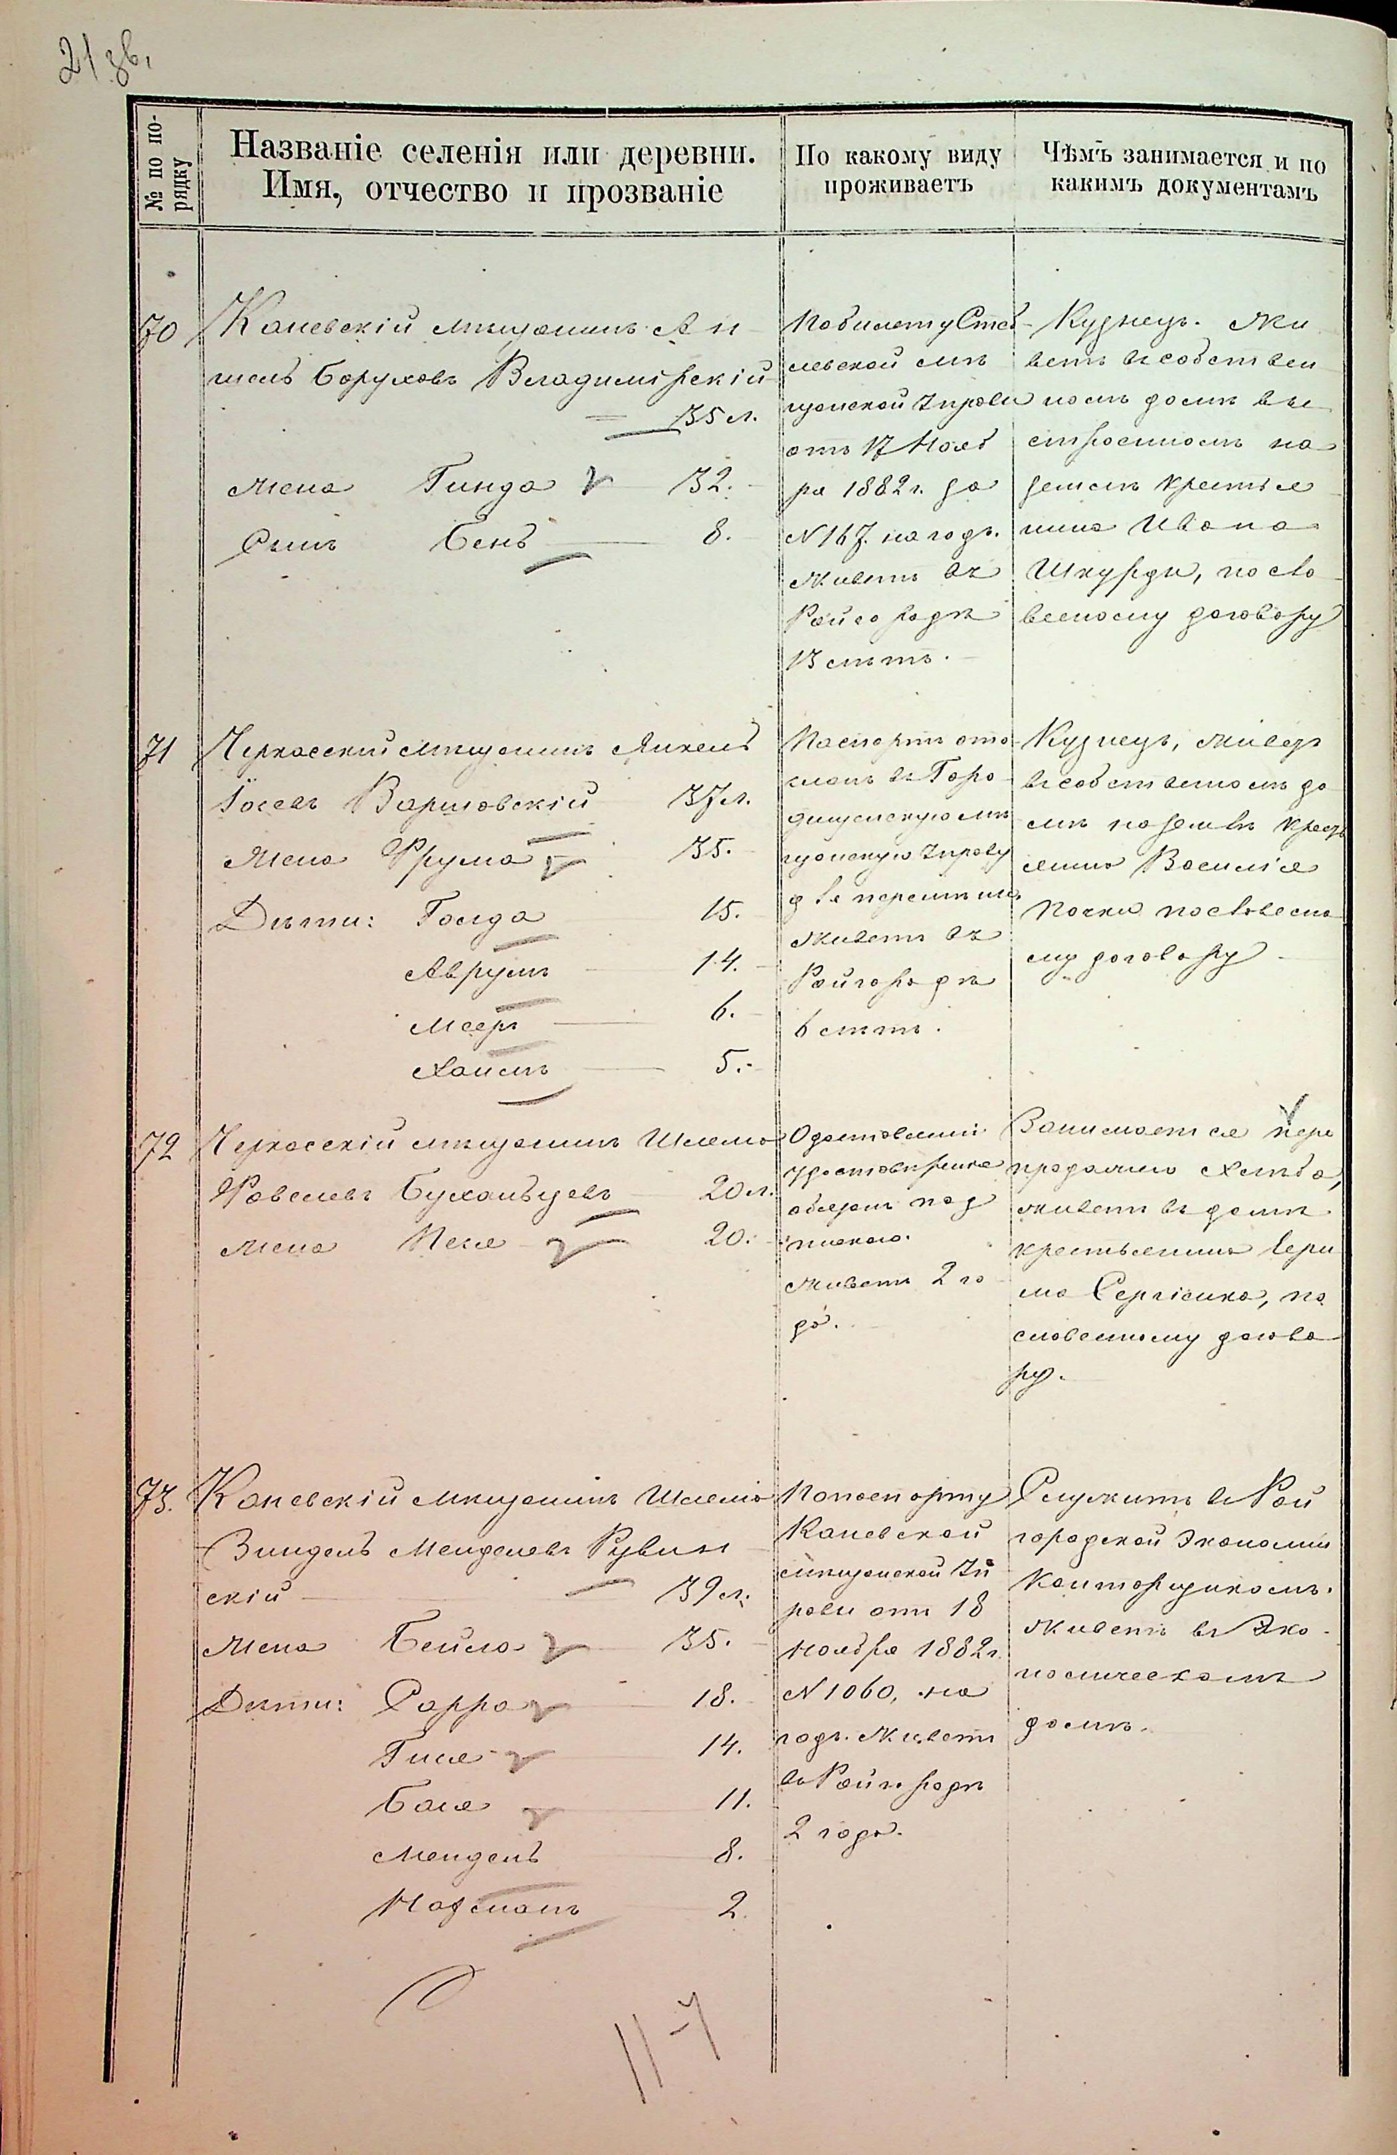 21 зв.
№ по по-
рядку
Названіе селенія или деревни.
Имя, отчество и прозваніе
По какому виду
проживаетъ
Чѣмъ занимается и по
какимъ документамъ
70
Каневскій мѣщанинъ Ан
шель Боруховъ Владимірскій
35 л.
Жена Гинда 32.
Сынъ Бень 8.
По билету Стеб
левской мѣ
щанской Управы
отъ 17 Нояб
ря 1882 г. за
N 167. на годъ.
Живетъ въ
Райгородѣ
13 лѣтъ.
Кузнецъ. Жи
ветъ въ собствен
номъ домѣ вы
строенномъ на
землѣ крестья
нина Ивана
Шкурди, по сло
весному договору
71
Черкасскій мѣщанинъ Янкель
Іосевъ Варшовскій 37 л.
Жена Фрума 35.
Дѣти: Голда 15.
Аврумъ 14.
Мееръ 6.
Хаимъ 5.
Паспортъ ото
сланъ въ Горо
дищенскую мѣ
щанскую Управу
для перемѣны
Живетъ въ
Райгородѣ
6 лѣтъ.
Кузнецъ, живетъ
въ собственномъ до
мѣ на землѣ крест
янина Василія
Почки по словесно
му договору
72
Черкасскій мѣщанинъ Шлема
Фавелевъ Бухальцевъ 20 л.
Жена Песя 20.
О доставленіи
удостовѣренія
обязанъ под
пискою.
Живетъ 2 го
да.
Занимается пере
продажею хлѣба,
живетъ въ домѣ
крестьянина
ма Сергіенка, по
словесному догово
ру.
73.
Каневскій мѣщанинъ Шлема
Зиндель Менделевъ Рувин
скій 39 л.
Жена Бейла 35.
Дѣти: Сарра 18.
Гися 14.
Бася 11.
Мендель 8.
Нафманъ 2.
По паспорту
Каневской
мѣщанской Уп
равы отъ 18
Ноября 1882 г.
N 1060, на
годъ. Живетъ
въ Райгородѣ
2 года.
Служитъ въ Рай
городской Экономіи
Конторщикомъ.
Живетъ въ Эко
номическомъ
домѣ.
11-7